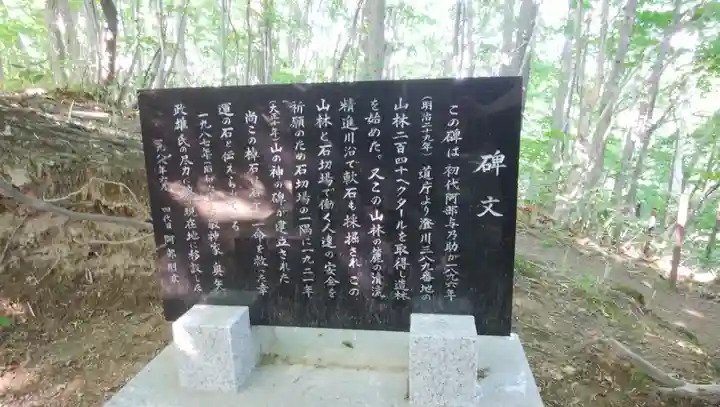 碑文
この碑は、初代阿部与乃助が一八九六年
(明治二十九年)道庁より澄川三八九番地の
山林二百四十ヘクタールを取得し造林
を始めた。又この山林の麓の清流
精進川沿で軟石も採掘されこの
山林と石切場で働く人達の安全を
祈願のため石切場の一隅に一九二一年
(大正十年)山の神の碑が建立された
尚この碑石
一命を救った幸
運の石と伝えられている
一九八七年
政雄氏の尽力
現在地に移設した
四代目 阿部